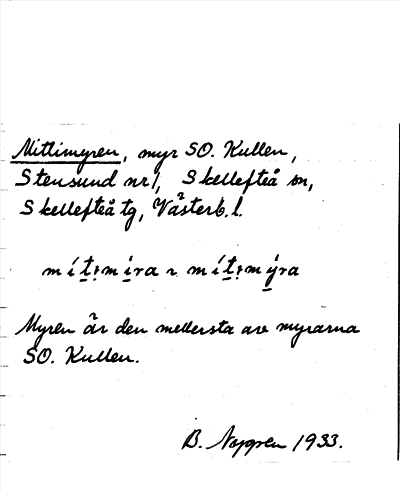 Mittimyren, myr SO. Kullen,
Stensund nr 1, Skellefteå sn,
Skellefteå tg, Västerb. l.
mítimira ~ mítimýra
Myren är den mellersta av myrarna
SO. Kullen.
B. 1933.